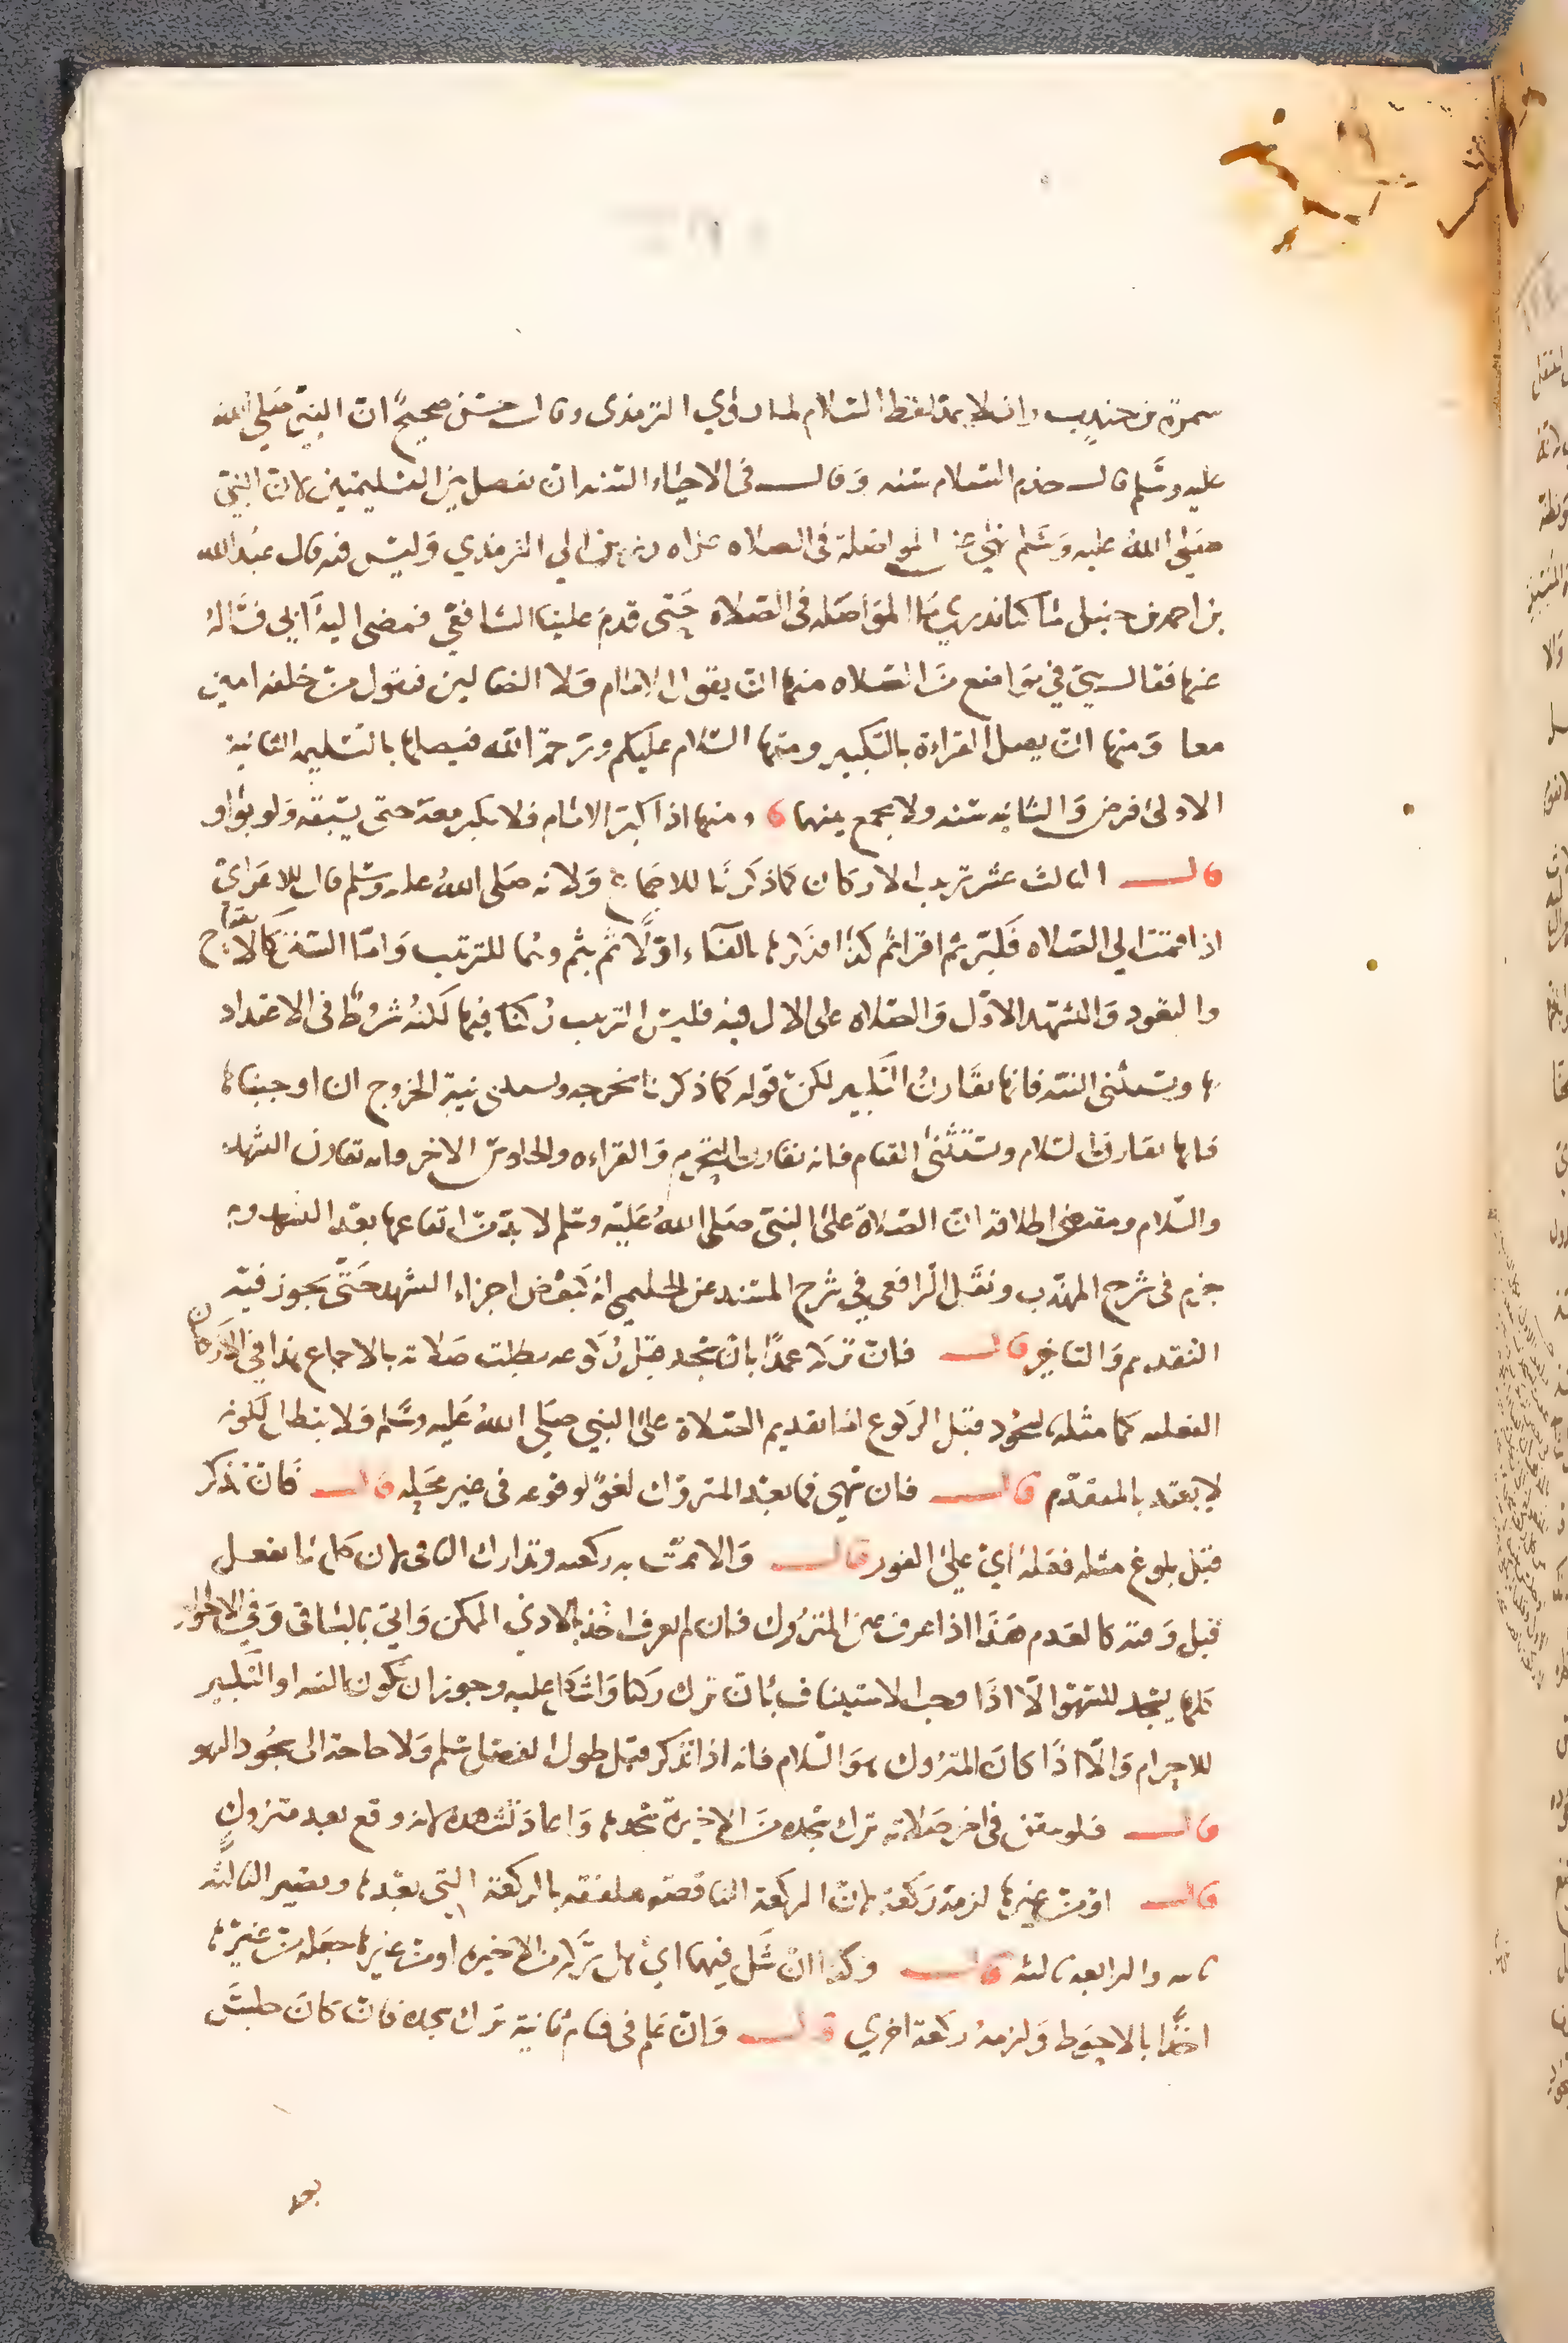 سمرة بن جندب وان لا يمد لفظ السلام لما روي الترمذي وقال حسن صحيح ان النبي صلى الله
عليه وسلم قال حذم السلام سنه وقال في الاحياء السنه ان يفصل بين التسليمتين لان النبي
صلى الله عليه وسلم نهي عن المواصلة في الصلاه عزاه رزين الي الترمذي وليس فيه قال عبد الله
بن احمد بن حنبل ما كنا ندري ما المواصله في الصلاه حتى قدم علينا الشافعي فمضى اليه ابي فساله
عنها فقال هي في مواضع من الصلاه منها ان يقول الامام ولا الضالين فيقول من خلفه امين
معا ومنها ان يصل القراءة بالتكبير ومنها السلام عليكم ورحمة الله فيصلها بالتسليمه الثانية
الاولى فرض والثانيه سنه ولا يجمع بينهما ومنها اذا كبر الامام فلا يكبر معه حتى يسبقه ولو بواو
قال الثالث عشر ترتيب الاركان كما ذكرنا للاجماع ولانه صلى الله عليه وسلم قال للاعرابي
اذا قمت الي الصلاه فكبر ثم اقرا ثم كذا فذكرها بالفاء اولا ثم بثم وهما للترتيب واما السنن كالافتتاح
والتعوذ والتشهد الاول والصلاه على الال فيه فليس الترتيب ركنا فيها لكنه شرط في الاعتداد
بها ويستثنى النيه فانها تقارن التكبير لكن قوله كما ذكرنا يخرجه ويستثنى نية الخروج ان اوجبناها
فانها تقارن السلام ويستثنى القيام فانه يقارن التحرم والقراءه والجلوس الاخر فانه يقارن التشهد
والسلام ومقتضى اطلاقه ان الصلاة على النبي صلى الله عليه وسلم لا بد من ايقاعها بعد التشهد وبه
جزم في شرح المهذب ونقل الرافعي في شرح المسند عن الحليمي انه كبعض اجزاء التشهد حتى يجوز فيه
التقديم والتاخير قال فان تركه عمدا بان سجد قبل ركوعه بطلت صلاته بالاجماع هذا في الاركان
الفعليه كما مثله بالسجود قبل الركوع اما تقديم الصلاة على النبي صلى الله عليه وسلم فلا يبطل لكونه
لا يعتد بالمتقدم قال فان سهى فما بعد المتروك لغو لوقوعه في غير محله قال فان تذكر
قبل بلوغ مثله فعله اي على الفور قال والا تمت به ركعته وتدارك الباقي لان كل ما يفعل
قبل وقته كالعدم هذا اذا عرف عين المتروك فان لم يعرف اخذ بالادني الممكن واتي بالباقي وفي الاحوال
كلها يسجد للسهو الا اذا وجب الاستيناف بان ترك ركنا واشكل عليه وجوز ان تكون النيه او التكبير
للاحرام والا اذا كان المتروك هو السلام فانه اذا تذكر قبل طول الفصل سلم ولا حاجة الى سجود السهو
قال فلو تيقن في اخر صلاته ترك سجده من الاخيرة سجدها واعاد تشهده لانه وقع بعد متروك
قال او من غيرها لزمه ركعة لان الركعة الناقصة ملفقه بالركعة التي بعدها وتصير الثالثه
ثانيه والرابعه ثالثه قال وكذا ان شك فيهما اي هل تركه من الاخيره او من غيرها جعله من غيرها
اخذا بالاحوط ولزمه ركعة اخري قال وان علم في قيام ثانية ترك سجده فان كان جلس
بعد